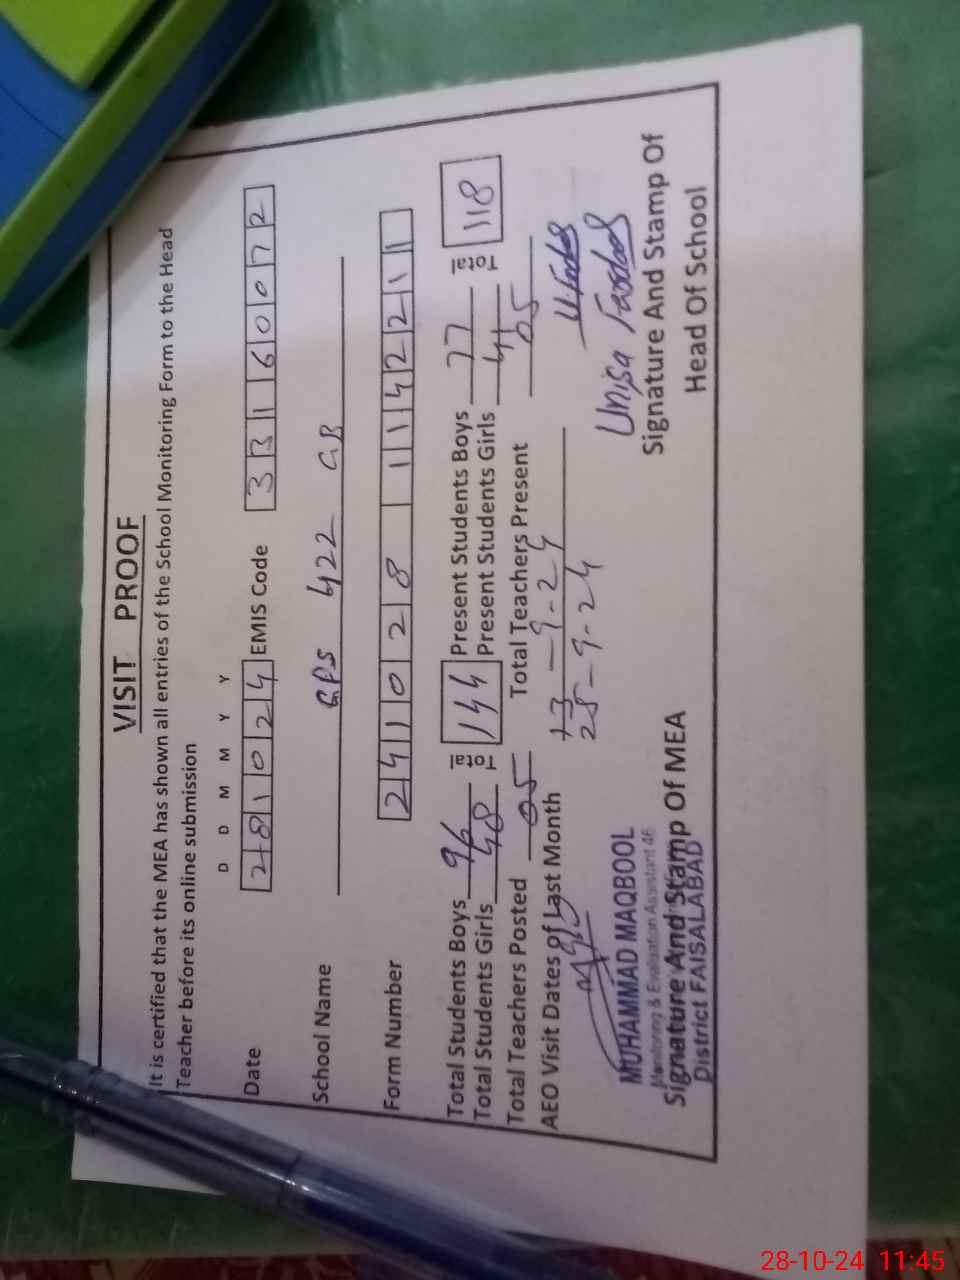 VISIT PROOF
It is certified that the MEA has shown all entries of the School Monitoring Form to the Head
Teacher before its online submission
D D M M Y Y
Date 281024 EMIS Code 33160072
School Name GPS 422 GB
Form Number 241028 1142211
Total Students Boys 96 Total 144 Present Students Boys 77 Total 118
Total Students Girls 48 Present Students Girls 41
Total Teachers Posted 05 Total Teachers Present 05
AEO Visit Dates of Last Month 13-9-24
28-9-24
MUHAMMAD MAQBOOL
Monitoring & Evaluation Assistant 46
Signature And Stamp Of MEA
District FAISALABAD
Signature And Stamp Of
Head Of School
28-10-24 11:45